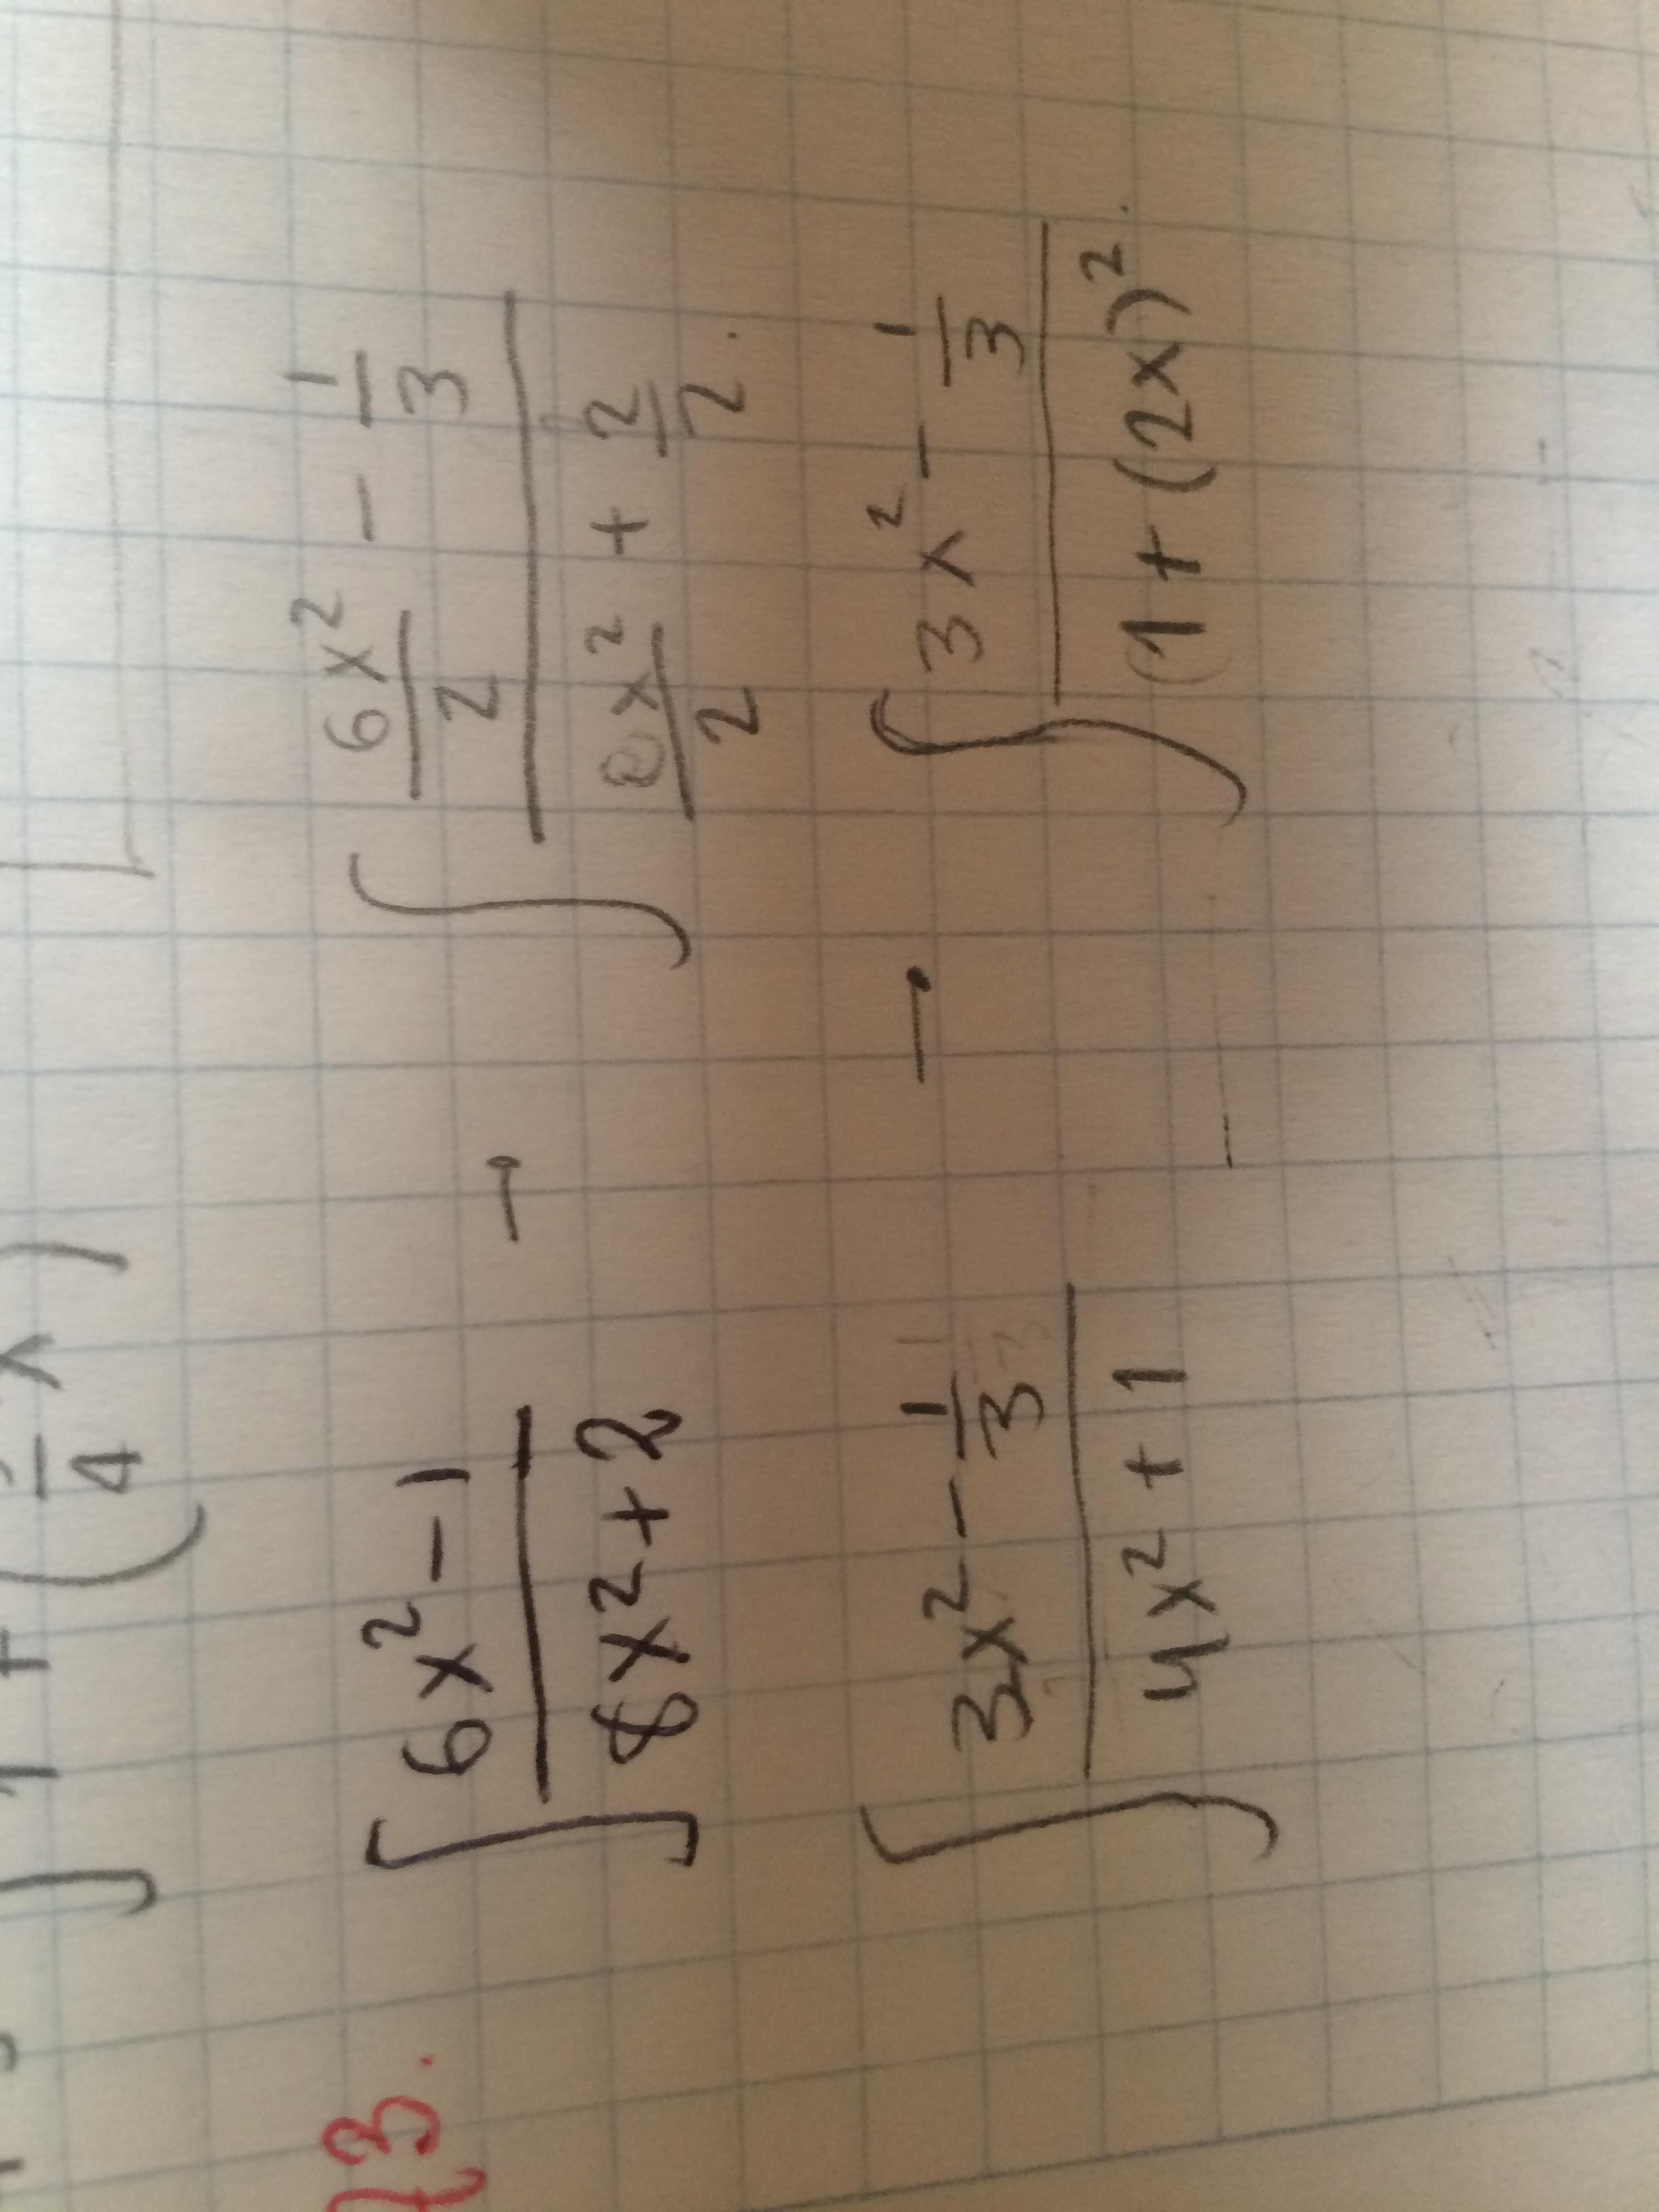 4
x)
43.
∫ (6x² - 1)/(8x² + 2) - ∫ (6x²/2 - 1/3)/(8x²/2 + 2/2)
∫ (3x² - 1/3)/(4x² + 1) - ∫ (3x² - 1/3)/(1 + (2x)²)